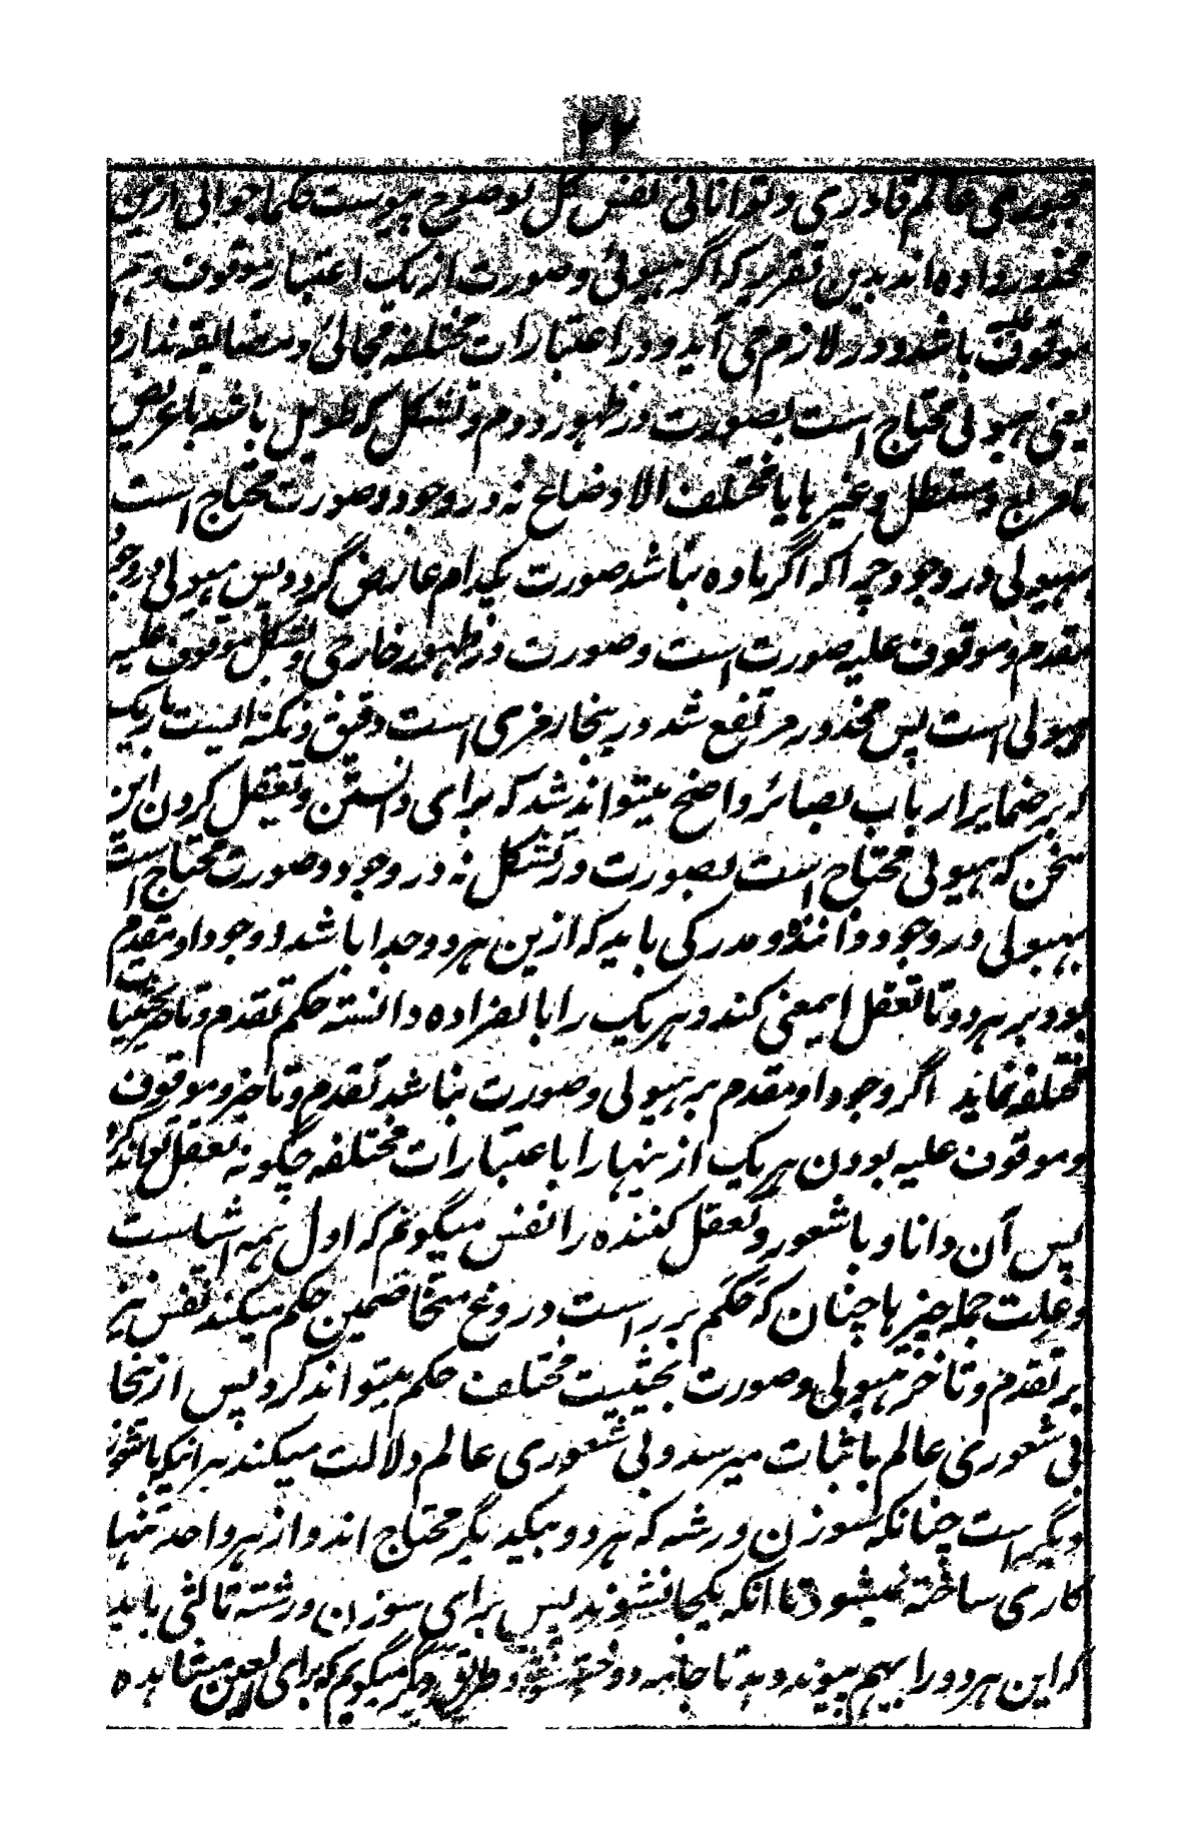 ۲۲
مجبوری عالم قادری و توانائی نفس کل بوضوح پیوست حکما جوابی ازین
محذور داده اند بدین تقریر که اگر هیولیٰ و صورت از یک اعتبار موقوف و هم
موقوف علیه باشد دور لازم می آید و در اعتبارات مختلفه محالی و مضایقه ندارد
یعنی هیولی محتاج است بصورت در ظهور دوم و تشکل که طویل باشد یا عریض
یا مربع و مستطیل و غیرها یا مختلف الاوضاع نه در وجود و صورت محتاج است
بهیولی در وجود چرا که اگر ماده نباشد صورت بکدام عارض گردد پس هیولی در وجود
مقدم و موقوف علیه صورت است و صورت در ظهور خارجی و تشکل موقوف علیه
هیولی است پس محذور مرتفع شد درینجا رمزی است دقیق و نکته ایست باریک
که بر ضمایر ارباب بصائر واضح میتواند شد که برای دانستن و تعقل کردن این
سخن که هیولی محتاج است بصورت در تشکل نه در وجود و صورت محتاج است
بهیولی در وجود داننده و مدرکی باید که ازین هر دو جدا باشد و وجود او مقدم
بود بر هر دو تا تعقل اینمعنی کند و هر یک را بانفراده دانسته حکم تقدم و تاخر بحیثیات
مختلفه نماید اگر وجود او مقدم بر هیولی و صورت نباشد تقدم و تاخر و موقوف
و موقوف علیه بودن هر یک ازینها را باعتبارات مختلفه چگونه تعقل تواند کرد
پس آن دانا و باشعور و تعقل کننده را نفس میگویم که اول همه اشیاست
و علت جمله چیزها چنان که حَکَم بر راست و دروغ متخاصمین حکم میکند نفس نیز
بر تقدم و تاخر هیولی و صورت بحیثیت مختلف حکم میتواند کرد پس ازینجا
بی شعوری عالم باثبات میرسد و بی شعوری عالم دلالت میکند بر آنکه باشعور
دیگر است چنانکه سوزن و رشته که هر دو بیکدیگر محتاج اند و از هر واحد تنها
کاری ساخته نمیشود تا آنکه یکجا نشوند پس برای سوزن و رشته ثالثی باید
که این هر دو را بهم پیوند دهد تا جامه دوخته شود و طریق دیگر میگویم که برای مشاهده